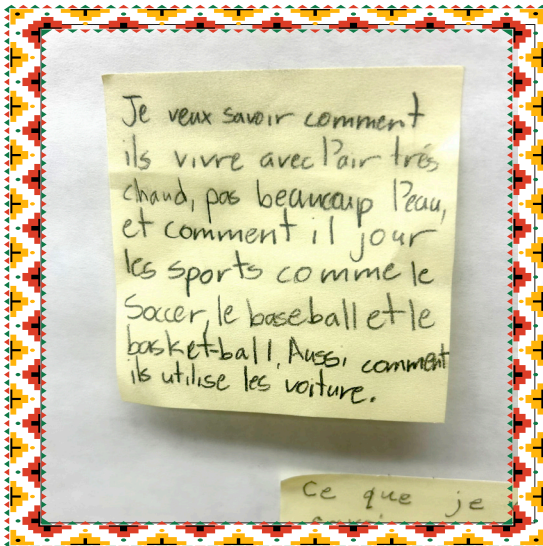 Je veux savoir comment
ils vivre avec l'air trés
chaud, pas beaucoup l'eau,
et comment il jour
les sports comme le
Soccer, le baseball et le
basket-ball. Aussi comment
ils utilise les voiture.
Ce que je